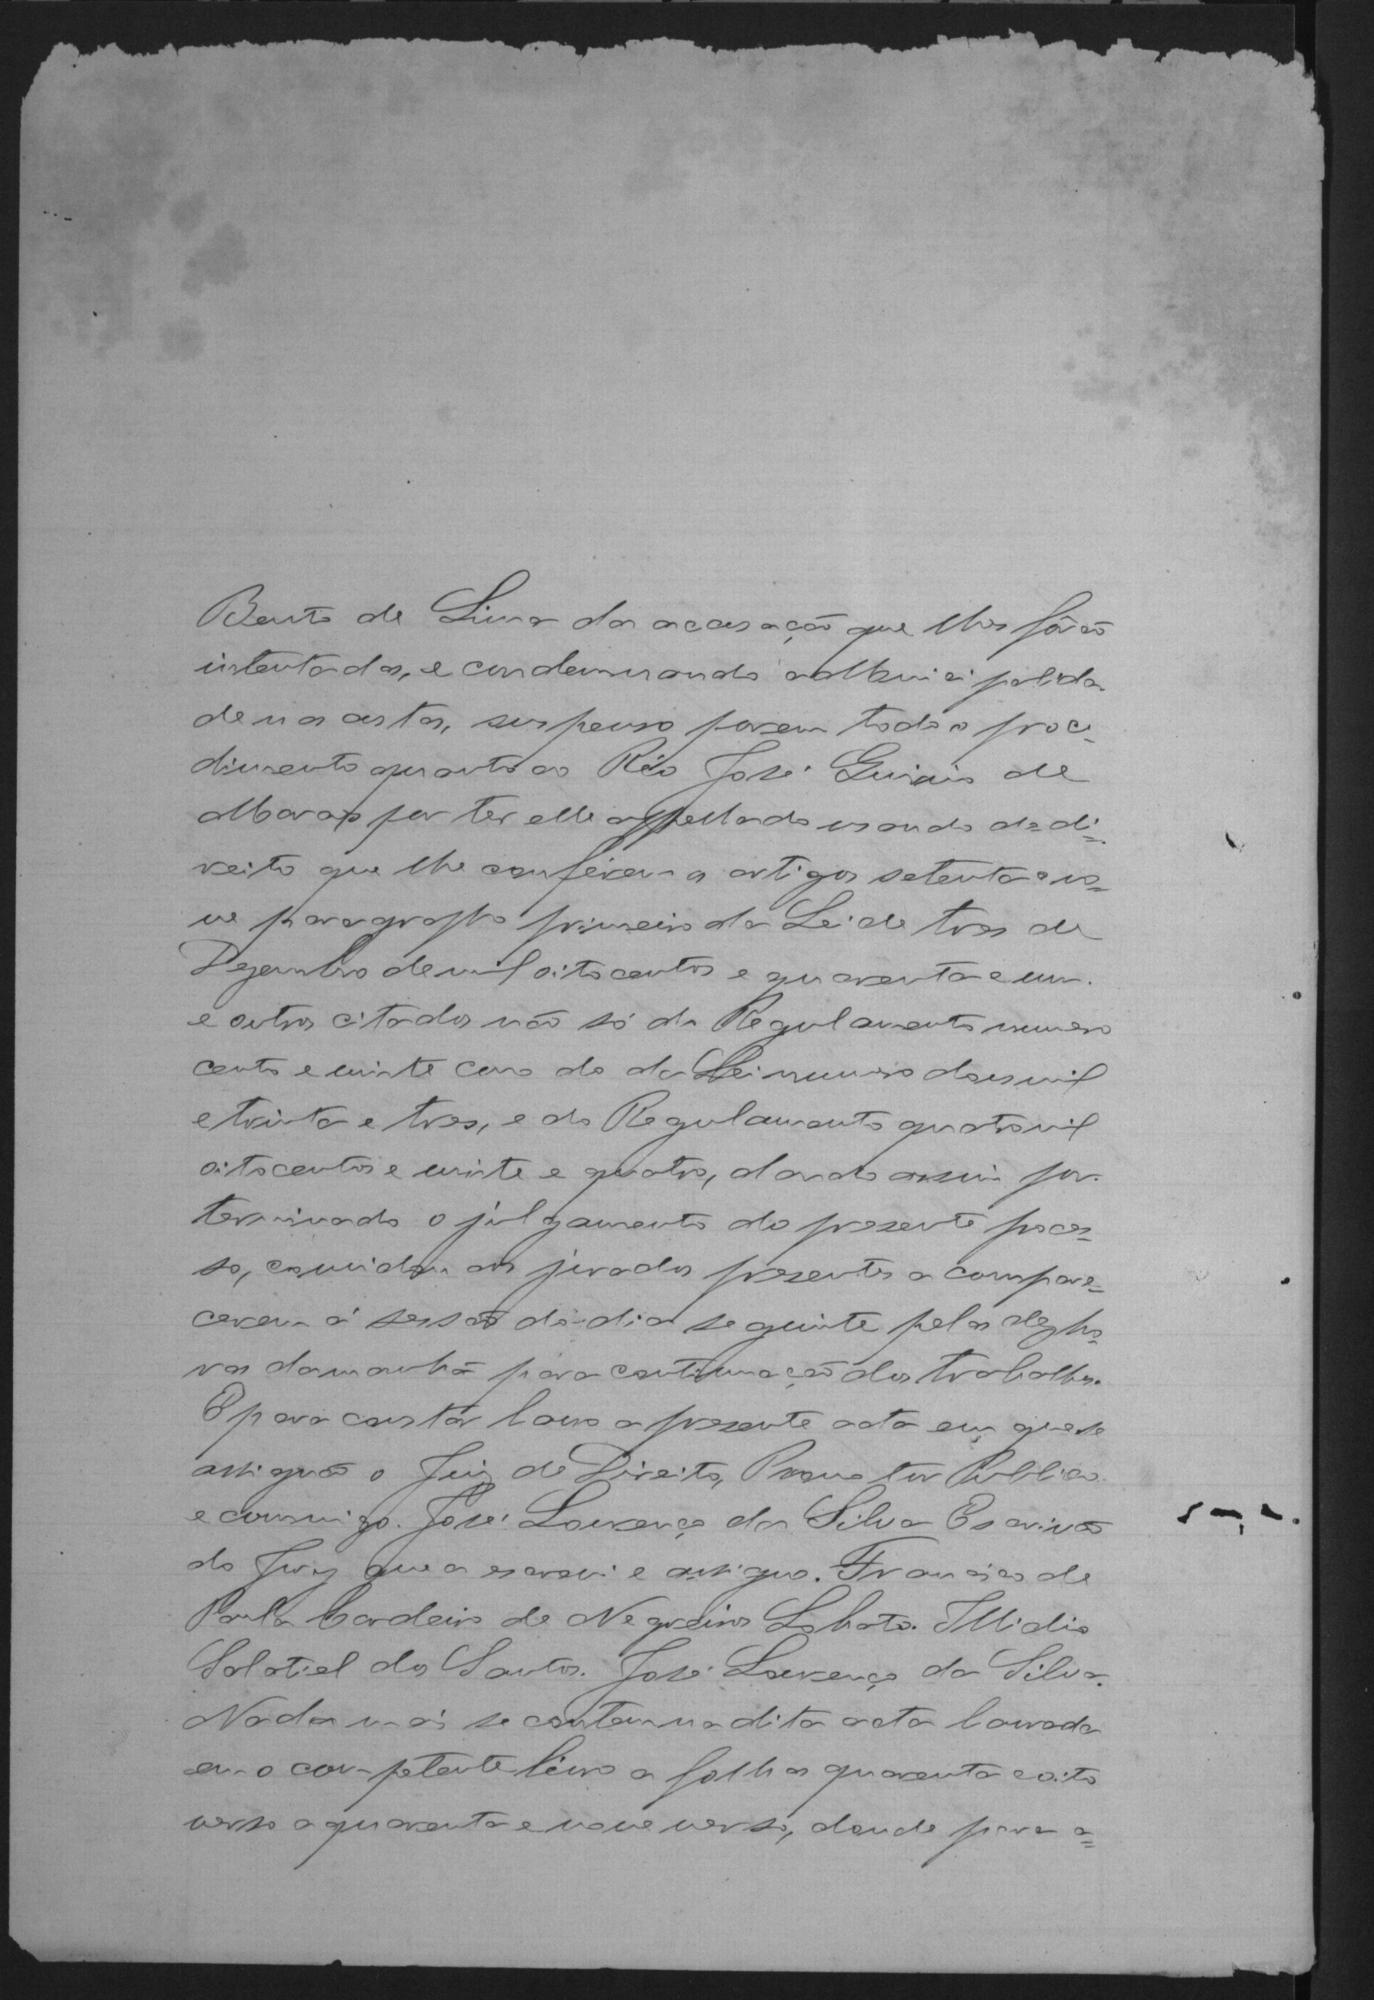 Bento de Lima da accusação que lhes forão
intentadas, e condemnando a Municipalida-
de nas custas, suspenso porem todo o proce-
dimento quanto ao Réo José de
Moraes por ter elle appellado usando do di-
reito que lhe conferem os artigos setenta e no-
ve paragrapho primeiro da Lei de tres de
Dezembro de mil oitocentos e quarenta e um.
e outros citados não só do Regulamento numero
cento e vinte como do da Lei numero dous mil
e trinta e tres, e do Regulamento quatro mil
oitocentos e vinte e quatro, dando assim por
terminado o julgamento do presente proces-
so, convidou aos jurados presentes a compare-
cerem á sessão do dia seguinte pelas dez ho-
ras da manhã para continuação dos trabalhos.
E para constar lavro a presente acta em que se
assignão o Juiz de Direito, Promotor Publico
e commigo. José Lourenço da Silva Escrivão
do Jury que a escrevi e assigno. Francisco de
Paula Cordeiro de Negreiros Lobato. Illidio
Salatiel dos Santos. José Lourenço da Silva.
Nada mais se contem na dita acta lavrada
em o competente livro a folhas quarenta e oito
verso a quarenta e nove verso, donde para a-